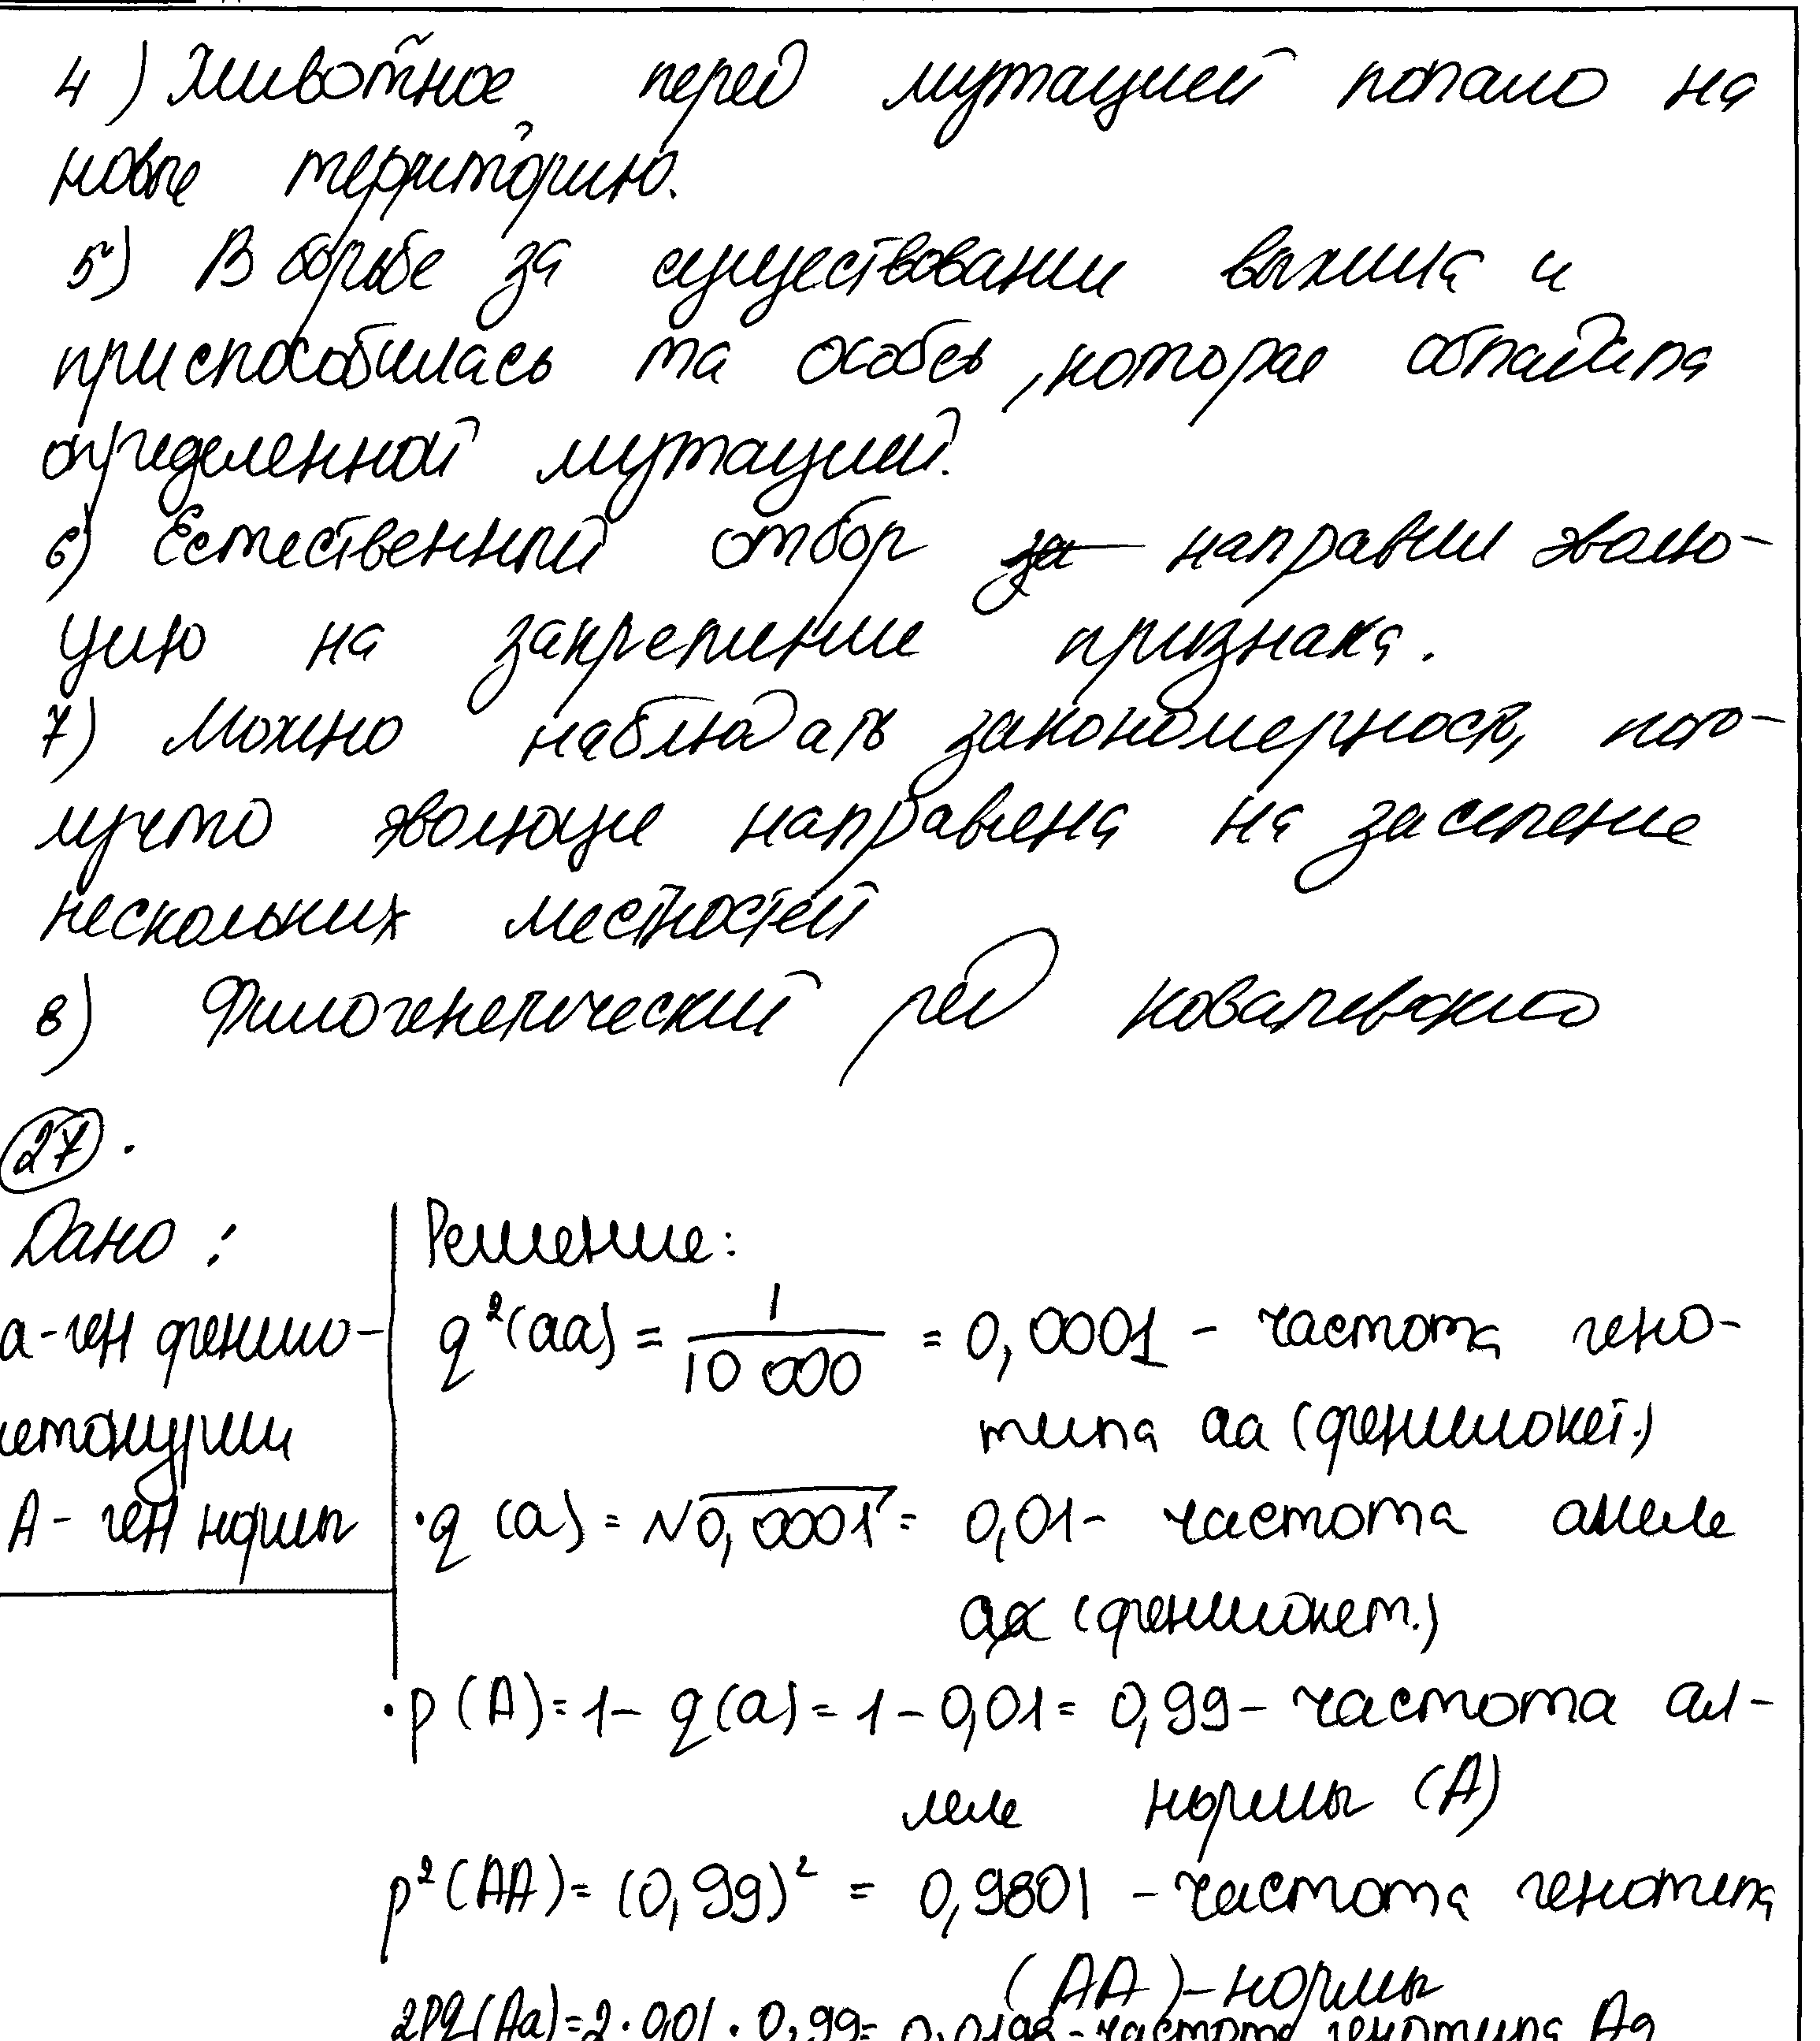 4) Животное перед мутацией попало на
новые территорию.
5) В борьбе за существовании выжила и
приспособилась та особь, которая обладала
определенной мутацией.
6) Естественный отбор за направил эволю-
цию на закрепление признака.
7) Можно наблюдать закономерность, пото-
мучто эволюция направлена на заселение
нескольких местностей
8) Филогенетический ряд Ковалевского
27.
Дано:
а-ген фенило-
кетонурии
А - ген нормы
Решение:
q²(aa) = 1/10 000 = 0,0001 - частота гено-
типа aa (фенилокет.)
· q (a) = √0,0001 = 0,01 - частота аллеля
a (фенилокет.)
· p (A) = 1 - q(a) = 1 - 0,01 = 0,99 - частота ал-
леля нормы (A)
p²(AA) = (0,99)² = 0,9801 - частота генотипа
(AA) - нормы
2pq(Aa) = 2 · 0,01 · 0,99 = 0,0198 - частота генотипа Aa